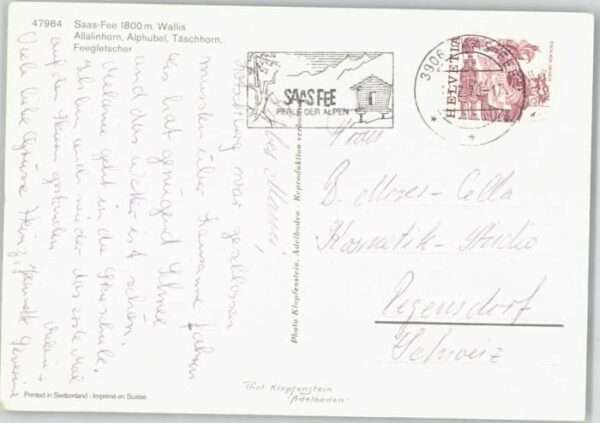 47984 Saas-Fee 1800 m. Wallis
Allalinhorn, Alphubel, Täschhorn,
Feegletscher
SAAS FEE
PERLE DER ALPEN
3906 SAAS-FEE
HELVETIA
Liebe Mami!
war geschlossen
mussten über Lausanne fahren
es hat genügend Schnee
und das Wetter ist schön.
Melanie geht in die Skischule,
als ich auch wieder das erste Mal
auf den
Viele liebe Grüsse Heinz,
Photo Klopfenstein, Adelboden - Reproduktion
Frau
B. Moser-Cella
Kosmetik-Studio
Regensdorf
Schweiz
Printed in Switzerland - Imprimé en Suisse
Phot Klopfenstein
Adelboden